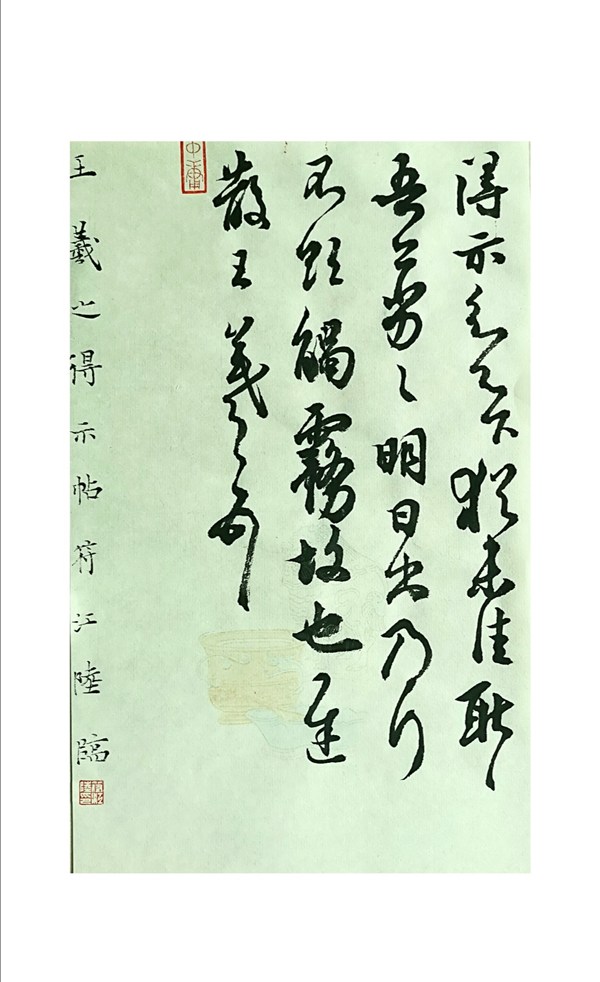 得示知足下猶未佳耿々
吾亦劣々明日出乃行
不欲觸霧故也遲
散王羲之頓首
中庸
王羲之得示帖符江陸臨